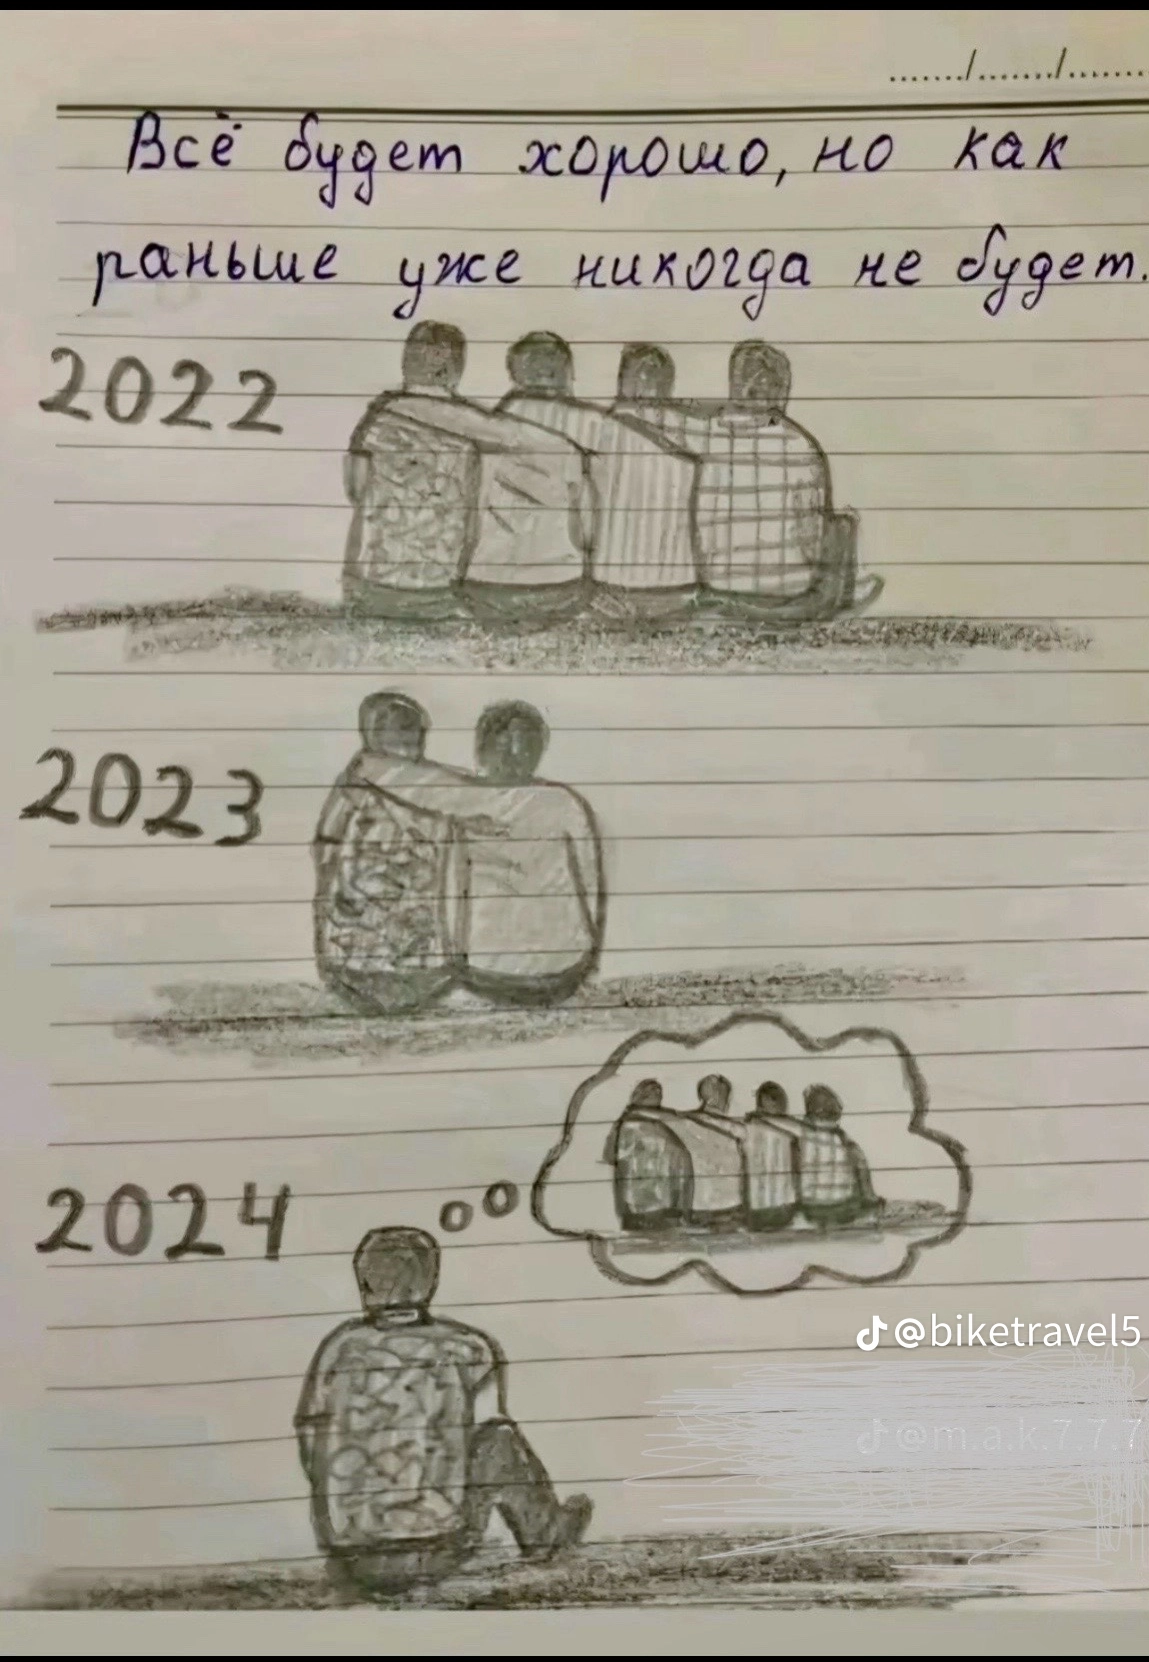 Всё будет хорошо, но как
раньше уже никогда не будет.
2022
2023
2024
@biketravel5
@m.a.k.7.7.7